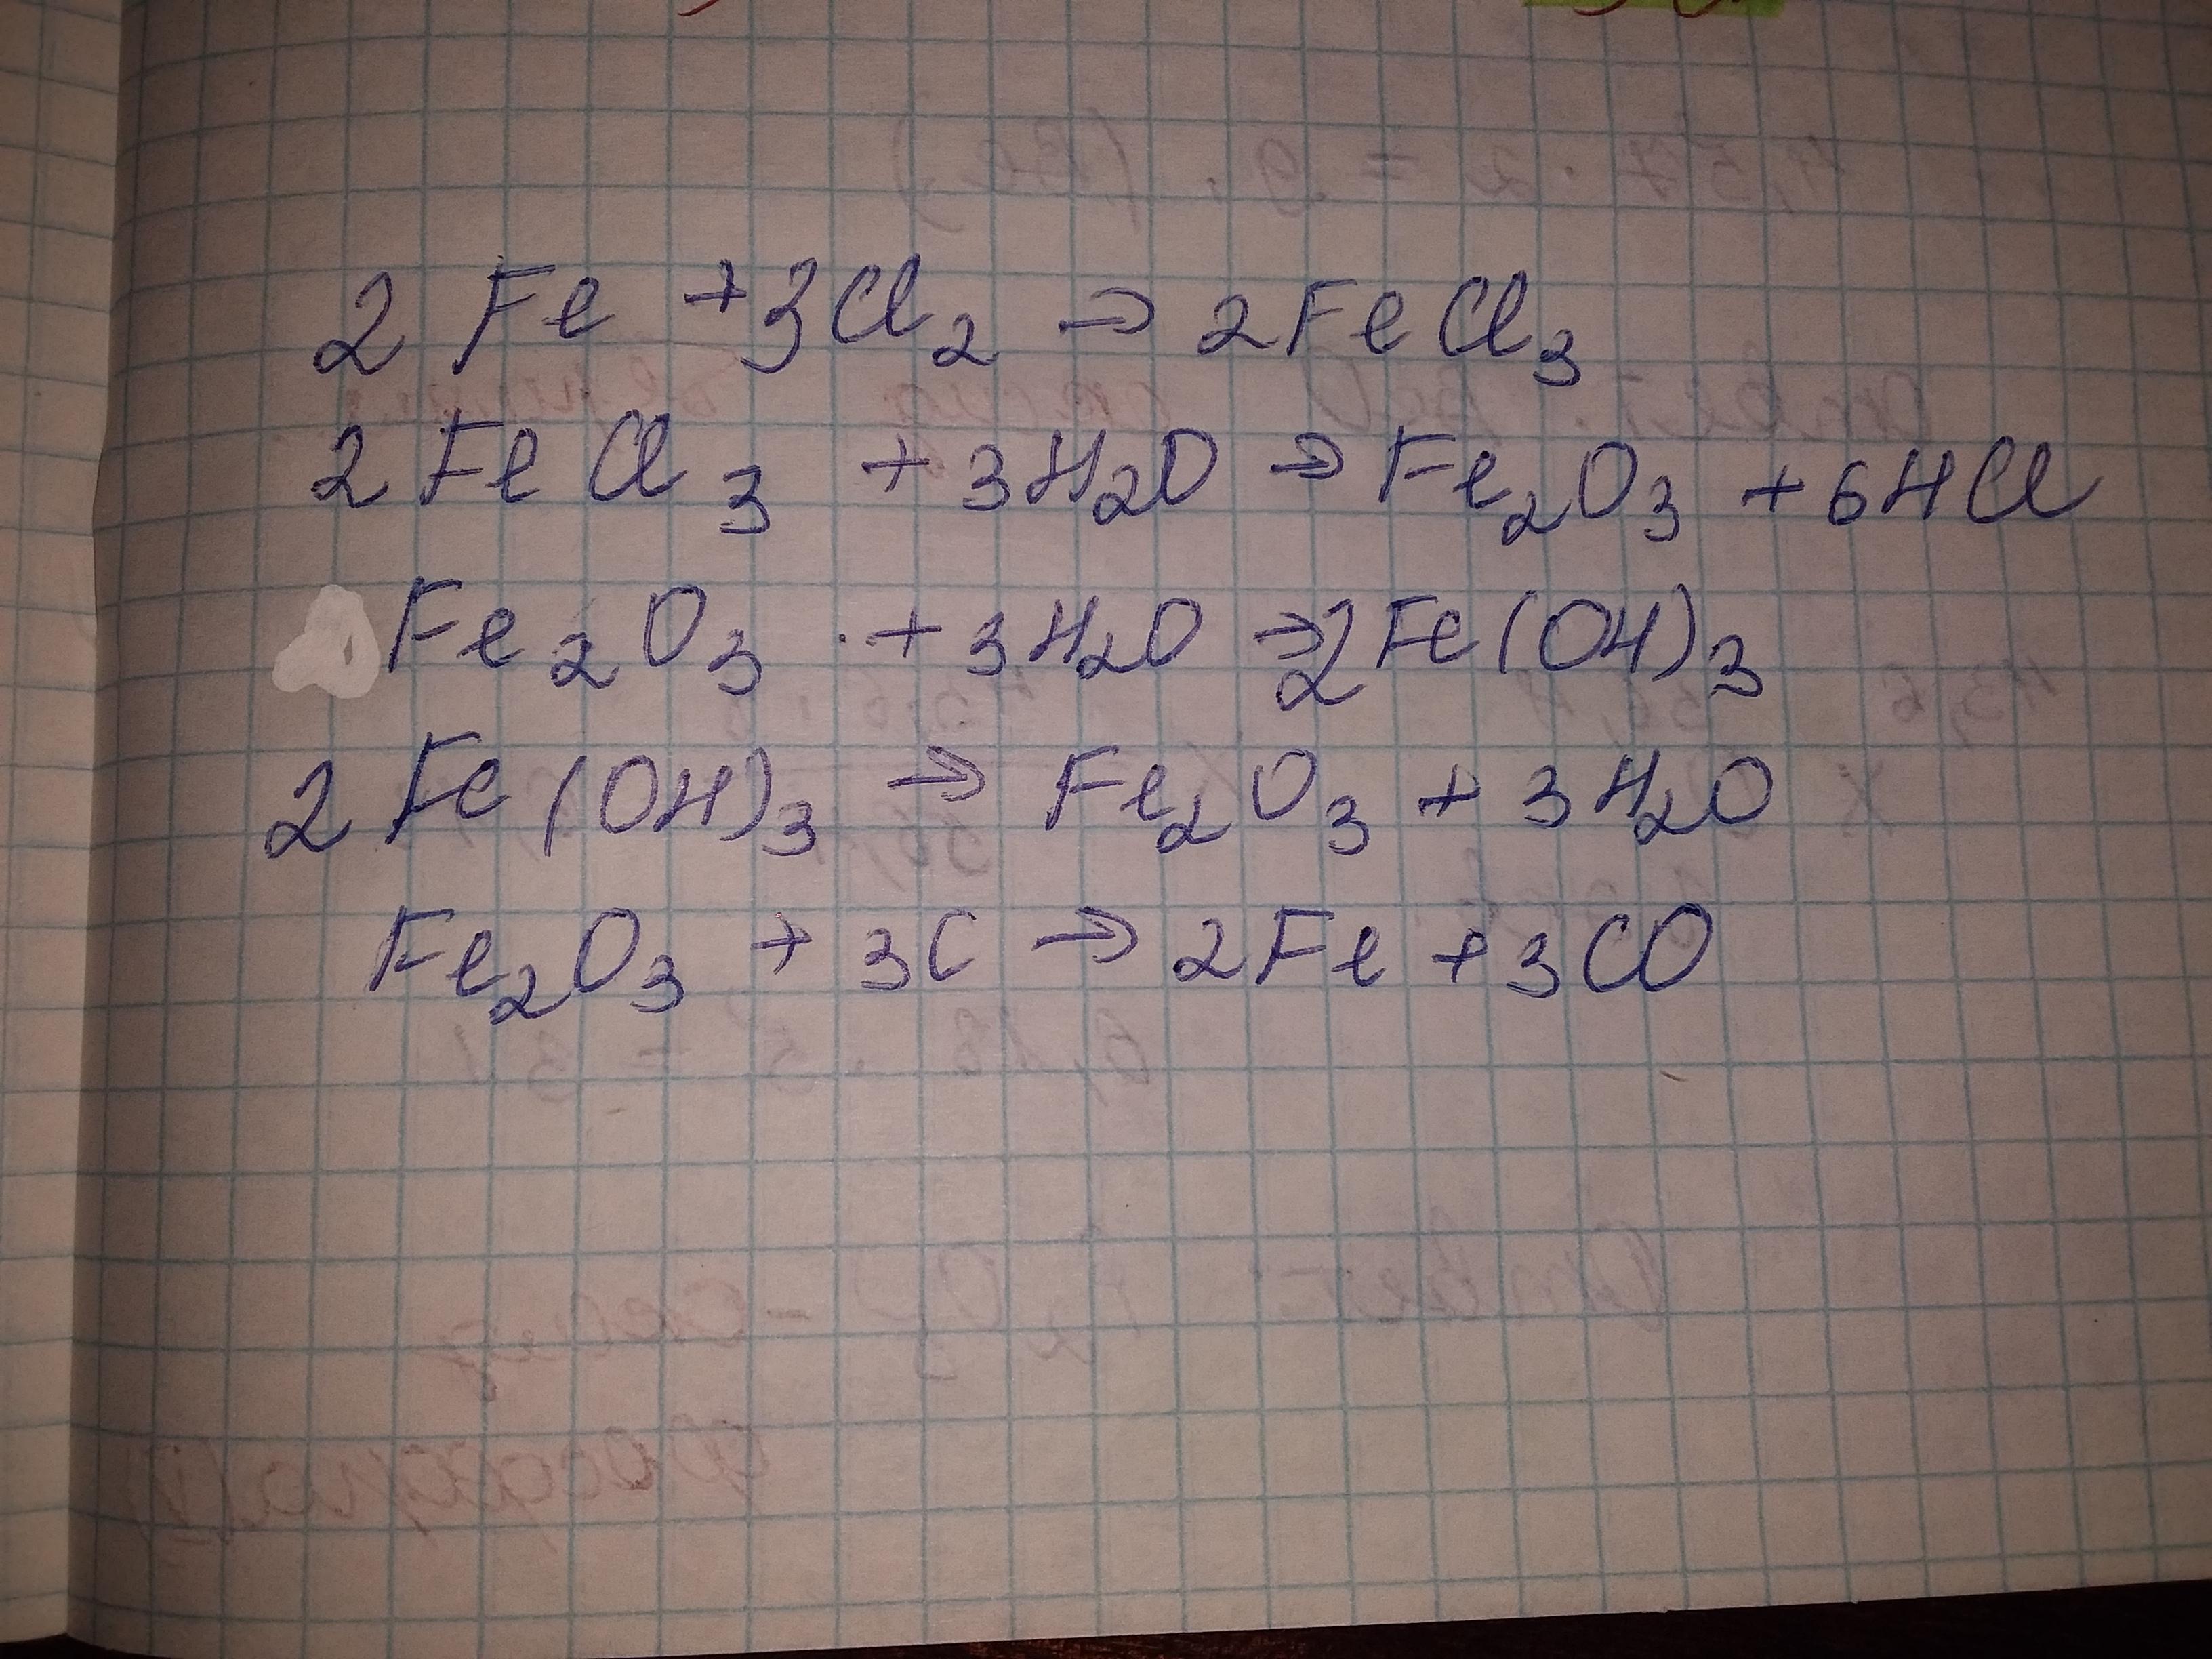 2 Fe + 3Cl₂ → 2FeCl₃
2 FeCl₃ + 3H₂O → Fe₂O₃ + 6HCl
Fe₂O₃ · + 3H₂O → 2Fe(OH)₃
2 Fe(OH)₃ → Fe₂O₃ + 3H₂O
Fe₂O₃ + 3C → 2Fe + 3CO